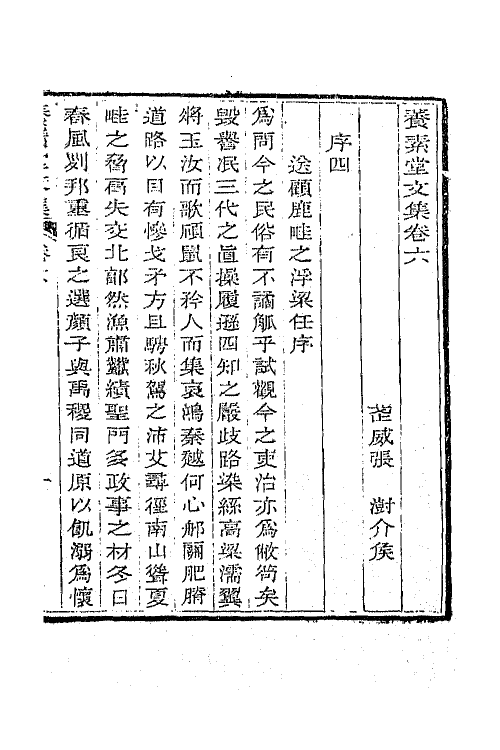 養素堂文集卷六
武威張 澍介侯
序四
送顧鹿畦之浮梁任序
爲問今之民俗有不譎觚乎試觀今之吏治亦爲敝笱矣
毀譽泯三代之眞操履遜四知之嚴歧路染絲高梁濡翼
將玉汝而歌碩鼠不矜人而集哀鴻秦越何心郍關肥瘠
道路以目有慘戈矛方且騁秋駕之沛艾尋徑南山聳夏
畦之脅高失交北部然漁肅獻績聖門多政事之材冬日
春風劉邦重循良之選顏子與禹稷同道原以飢溺爲懷
養素堂文集 卷六 一